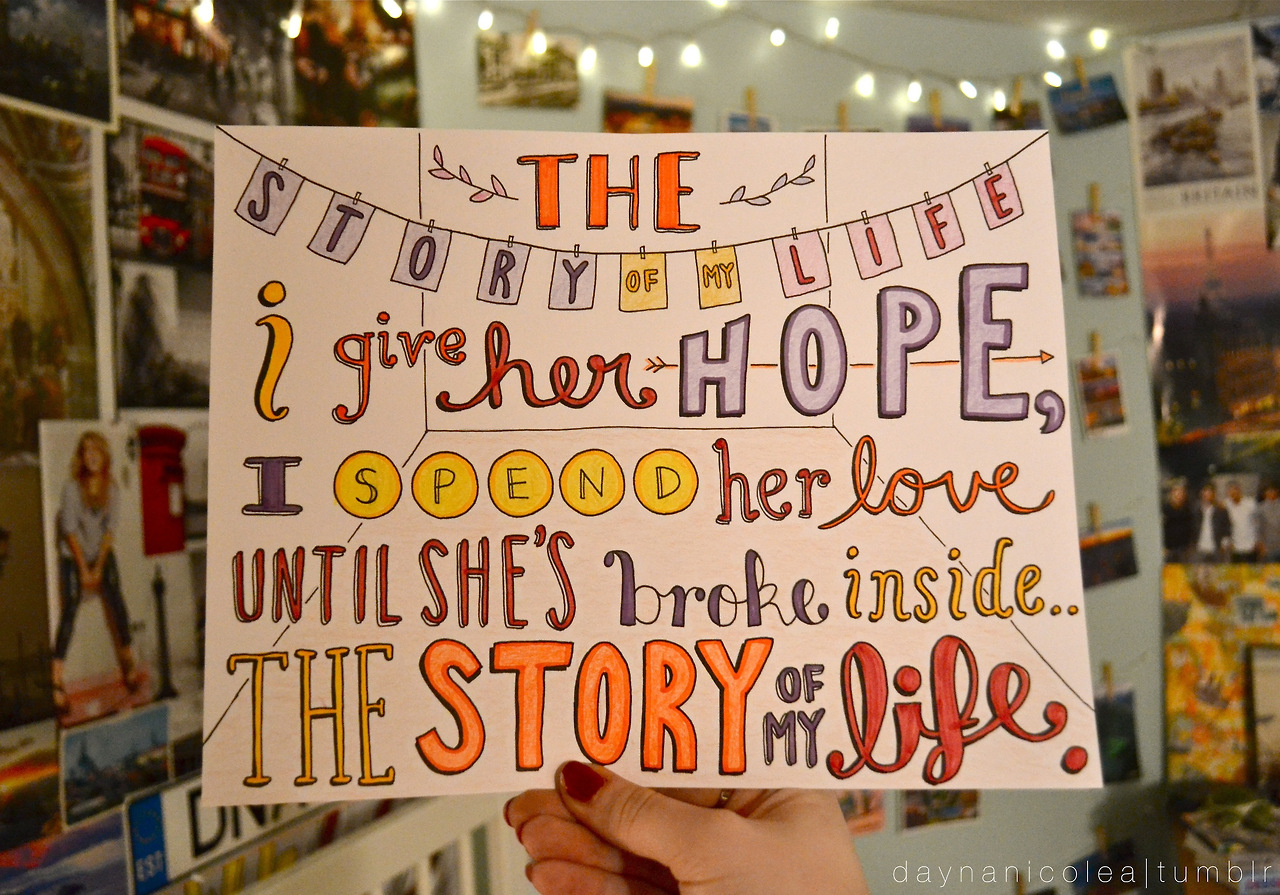 THE
STORY OF MY LIFE
i give her HOPE,
I SPEND her love
UNTIL SHE'S broke inside..
THE STORY OF MY life.
BRITAIN
DNA
daynanicolea|tumblr